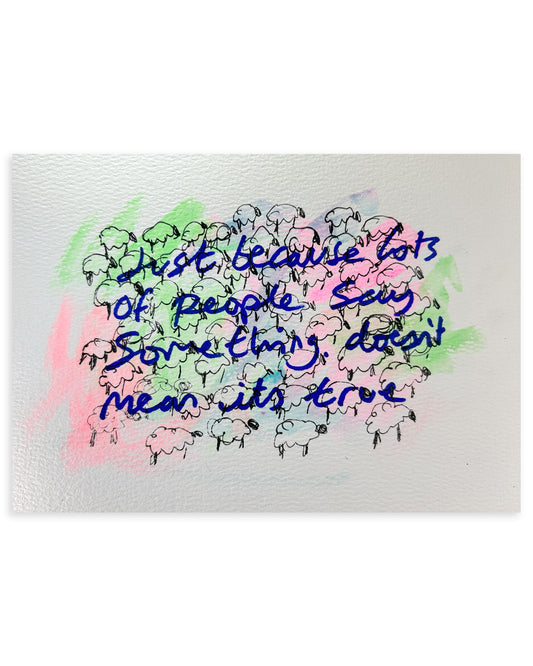 Just because lots
of people say
something. doesn't
mean its true